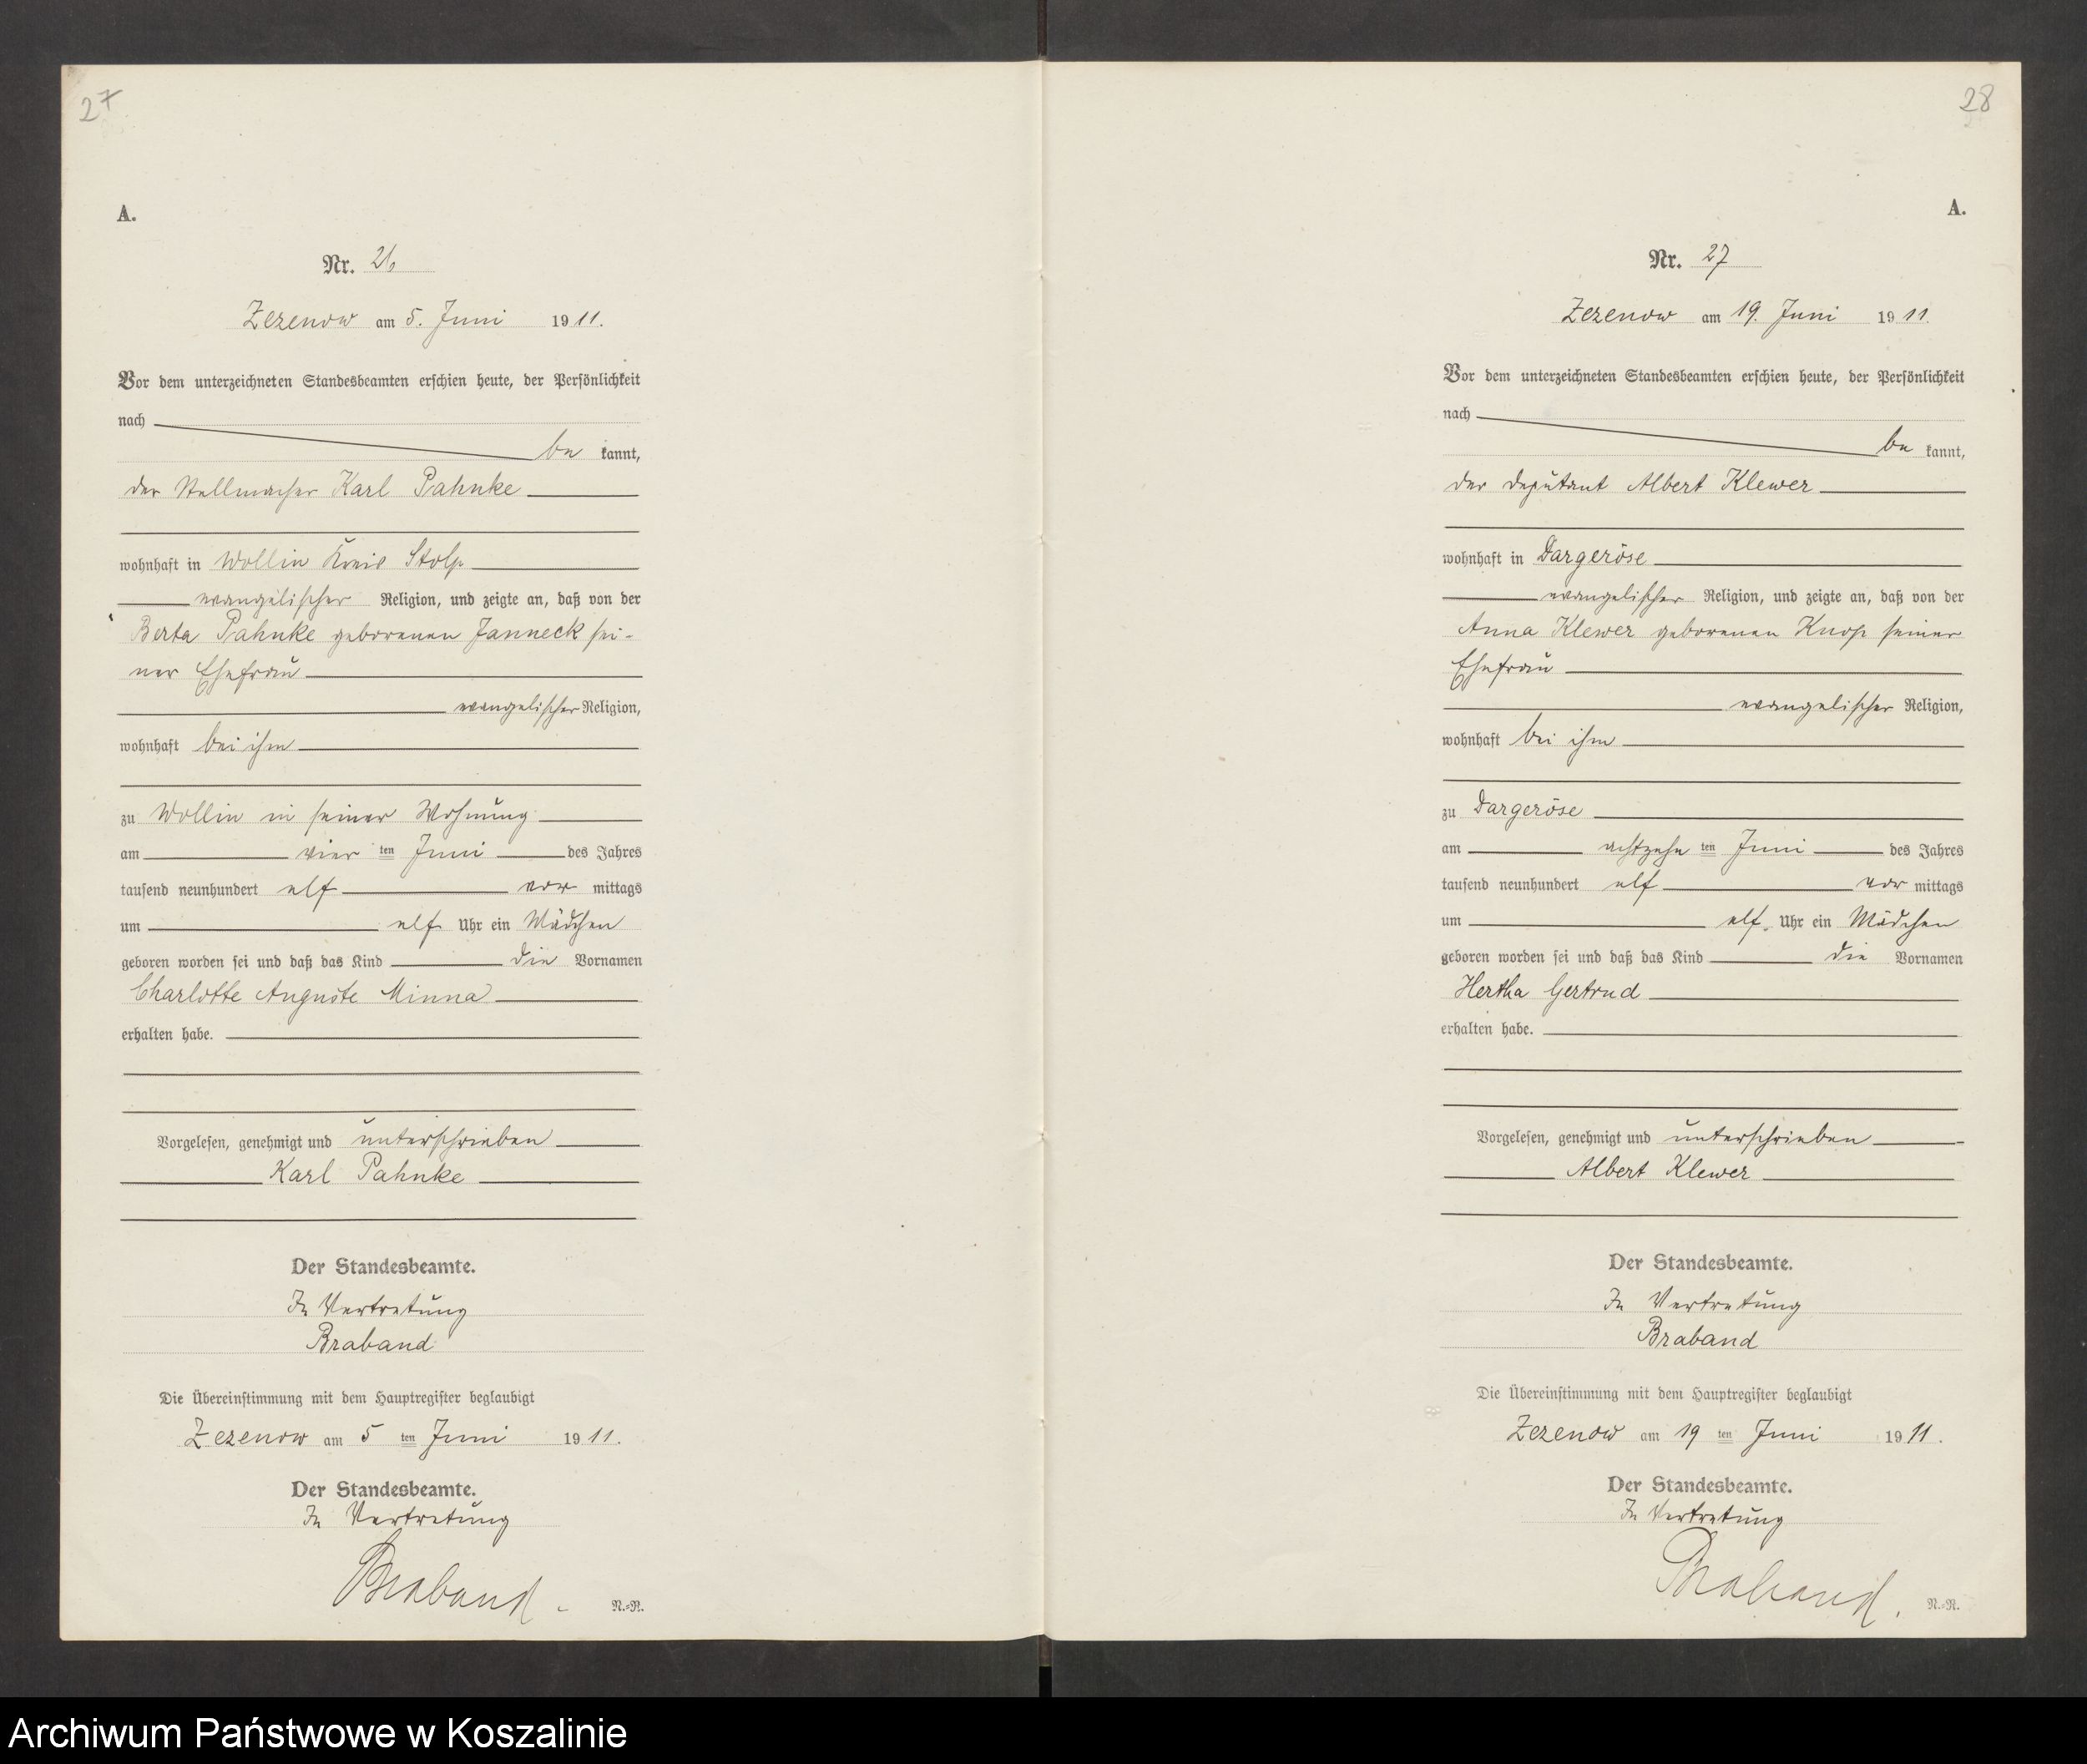 27
A.
Nr. 26
Zezenow am 5. Juni 1911.
Vor dem unterzeichneten Standesbeamten erschien heute, der Persönlichkeit
nach
be kannt,
der Stellmacher Karl Pahnke
wohnhaft in Wollin Kreis Stolp
evangelischer Religion, und zeigte an, daß von der
Berta Pahnke geborenen Janneck sei-
ner Ehefrau
evangelischer Religion,
wohnhaft bei ihm
zu Wollin in seiner Wohnung
am vier ten Juni des Jahres
tausend neunhundert elf vor mittags
um elf Uhr ein Mädchen
geboren worden sei und daß das Kind die Vornamen
Charlotte Auguste Minna
erhalten habe.
Vorgelesen, genehmigt und unterschrieben
Karl Pahnke
Der Standesbeamte.
In Vertretung
Braband
Die Übereinstimmung mit dem Hauptregister beglaubigt
Zezenow am 5 ten Juni 1911.
Der Standesbeamte.
In Vertretung
Braband.
N.=R.
28
A.
Nr. 27
Zezenow am 19. Juni 1911.
Vor dem unterzeichneten Standesbeamten erschien heute, der Persönlichkeit
nach
be kannt,
der Deputant Albert Klewer
wohnhaft in Dargeröse
evangelischer Religion, und zeigte an, daß von der
Anna Klewer geborenen Knop seiner
Ehefrau
evangelischer Religion,
wohnhaft bei ihm
zu Dargeröse
am achtzehn ten Juni des Jahres
tausend neunhundert elf vor mittags
um elf Uhr ein Mädchen
geboren worden sei und daß das Kind die Vornamen
Hertha Gertrud
erhalten habe.
Vorgelesen, genehmigt und unterschrieben
Albert Klewer
Der Standesbeamte.
In Vertretung
Braband
Die Übereinstimmung mit dem Hauptregister beglaubigt
Zezenow am 19 ten Juni 1911.
Der Standesbeamte.
In Vertretung
Braband.
N.=R.
Archiwum Państwowe w Koszalinie